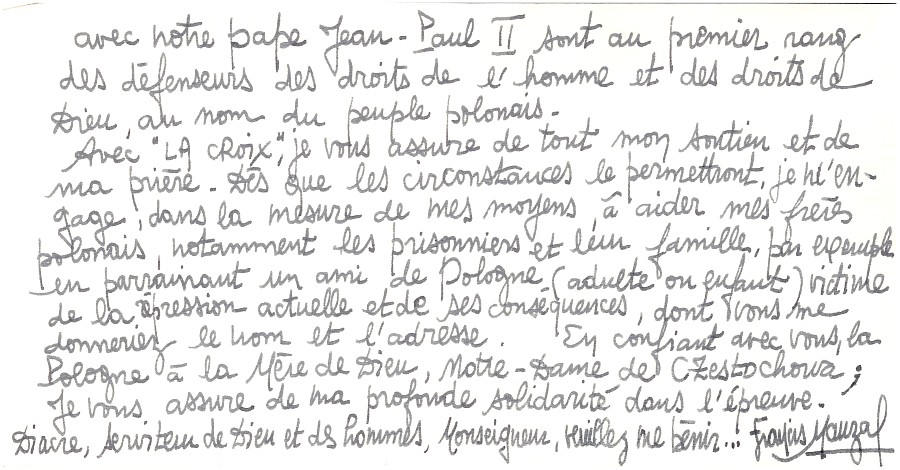 avec notre pape Jean-Paul II sont au premier rang
des défenseurs des droits de l'homme et des droits de
Dieu, au nom du peuple polonais.
Avec "LA CROIX", je vous assure de tout mon soutien et de
ma prière. Dès que les circonstances le permettront, je m'en-
gage, dans la mesure de mes moyens, à aider mes frères
polonais, notamment les prisonniers et leur famille, par exemple
en parrainant un ami de Pologne (adulte ou enfant) victime
de la répression actuelle et de ses conséquences, dont vous me
donneriez le nom et l'adresse. En confiant avec vous, la
Pologne à la Mère de Dieu, Notre-Dame de CZestochowa ;
Je vous assure de ma profonde solidarité dans l'épreuve.
Diacre, serviteur de Dieu et des hommes, Monseigneur, veuillez me bénir..! François